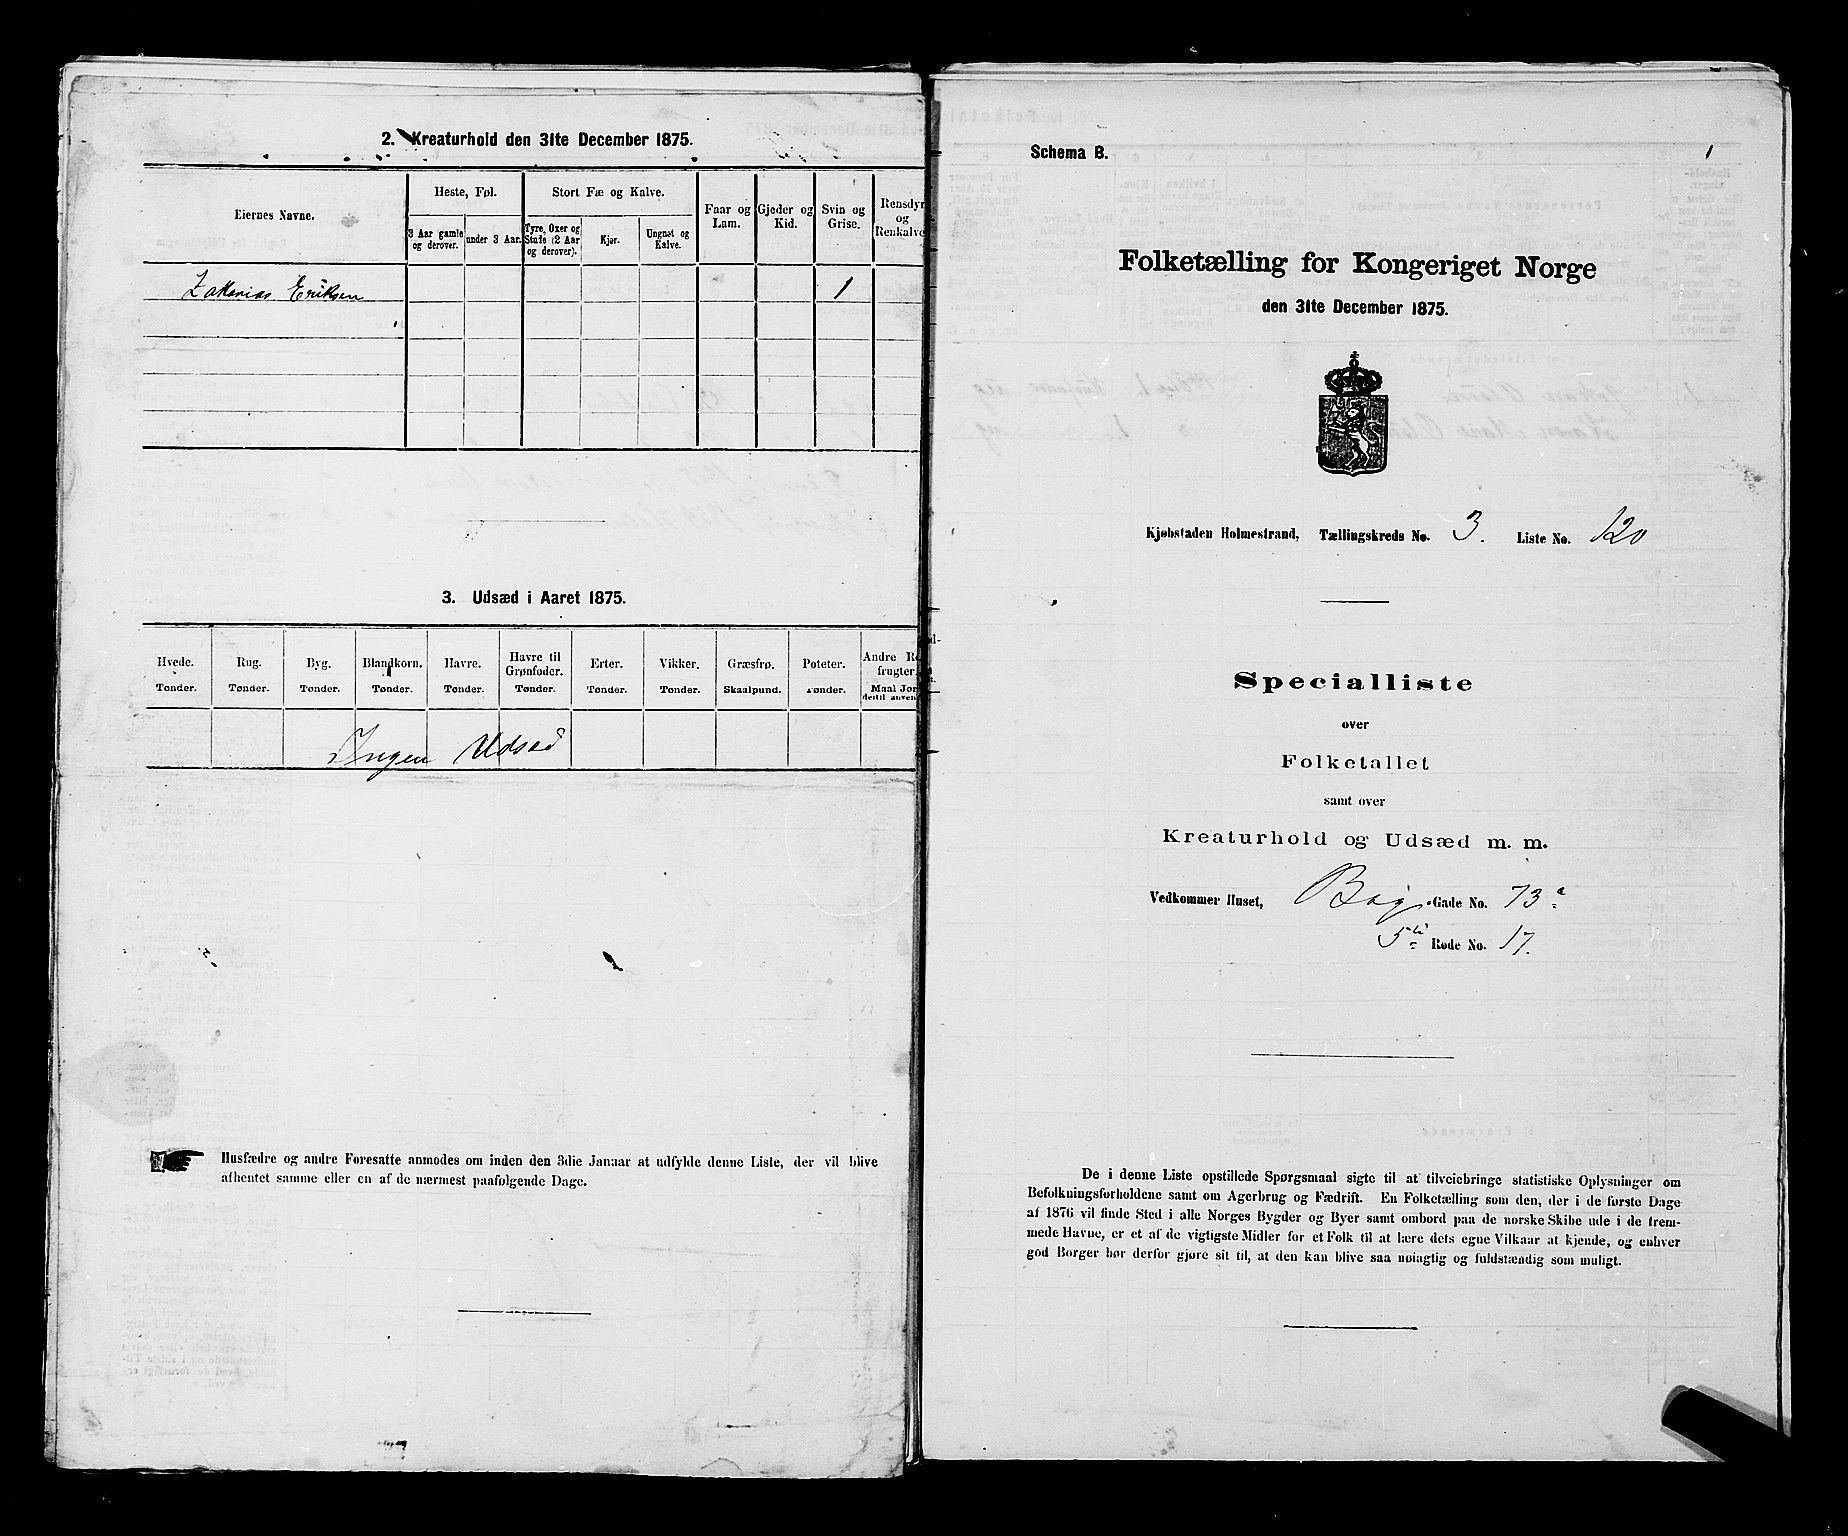 2. Kreaturhold den 31te December 1875.
Eiernes Navne.
Heste, Føl.
Stort Fæ og Kalve.
Faar og Lam.
Gjeder og Kid.
Svin og Grise.
Rensdyr og Renkalve
3 Aar gamle og derover.
under 3 Aar.
Tyre, Oxer og Stude (2 Aar og derover).
Kjør.
Ungnøt og Kalve.
Zakarias Eriksen 1
3. Udsæd i Aaret 1875.
Hvede. Tønder.
Rug. Tønder.
Byg. Tønder.
Blandkorn. Tønder.
Havre. Tønder.
Havre til Grønfoder. Tønder.
Erter. Tønder.
Vikker. Tønder.
Græsfrø. Skaalpund.
Poteter. Tønder.
Andre Ro frugter. Maal Jor dertil anven
Ingen Udsæd
Husfædre og andre Foresatte anmodes om inden den 3die Januar at udfylde denne Liste, der vil blive
afhentet samme eller en af de nærmest paafølgende Dage.
Schema B.
1
Folketælling for Kongeriget Norge
den 31te December 1875.
Kjøbstaden Holmestrand, Tællingskreds No. 3. Liste No. 120
Specialliste
over
Folketallet
samt over
Kreaturhold og Udsæd m. m.
Vedkommer Huset, Bag-Gade No. 73 a
5te Rode No. 17.
De i denne Liste opstillede Spørgsmaal sigte til at tilveiebringe statistiske Oplysninger om
Befolkningsforholdene samt om Agerbrug og Fædrift. En Folketælling som den, der i de første Dage
af 1876 vil finde Sted i alle Norges Bygder og Byer samt ombord paa de norske Skibe ude i de frem-
mede Havne, er et af de vigtigste Midler for et Folk til at lære dets egne Vilkaar at kjende, og enhver
god Borger bør derfor gjøre sit til, at den kan blive saa nøiagtig og fuldstændig som muligt.